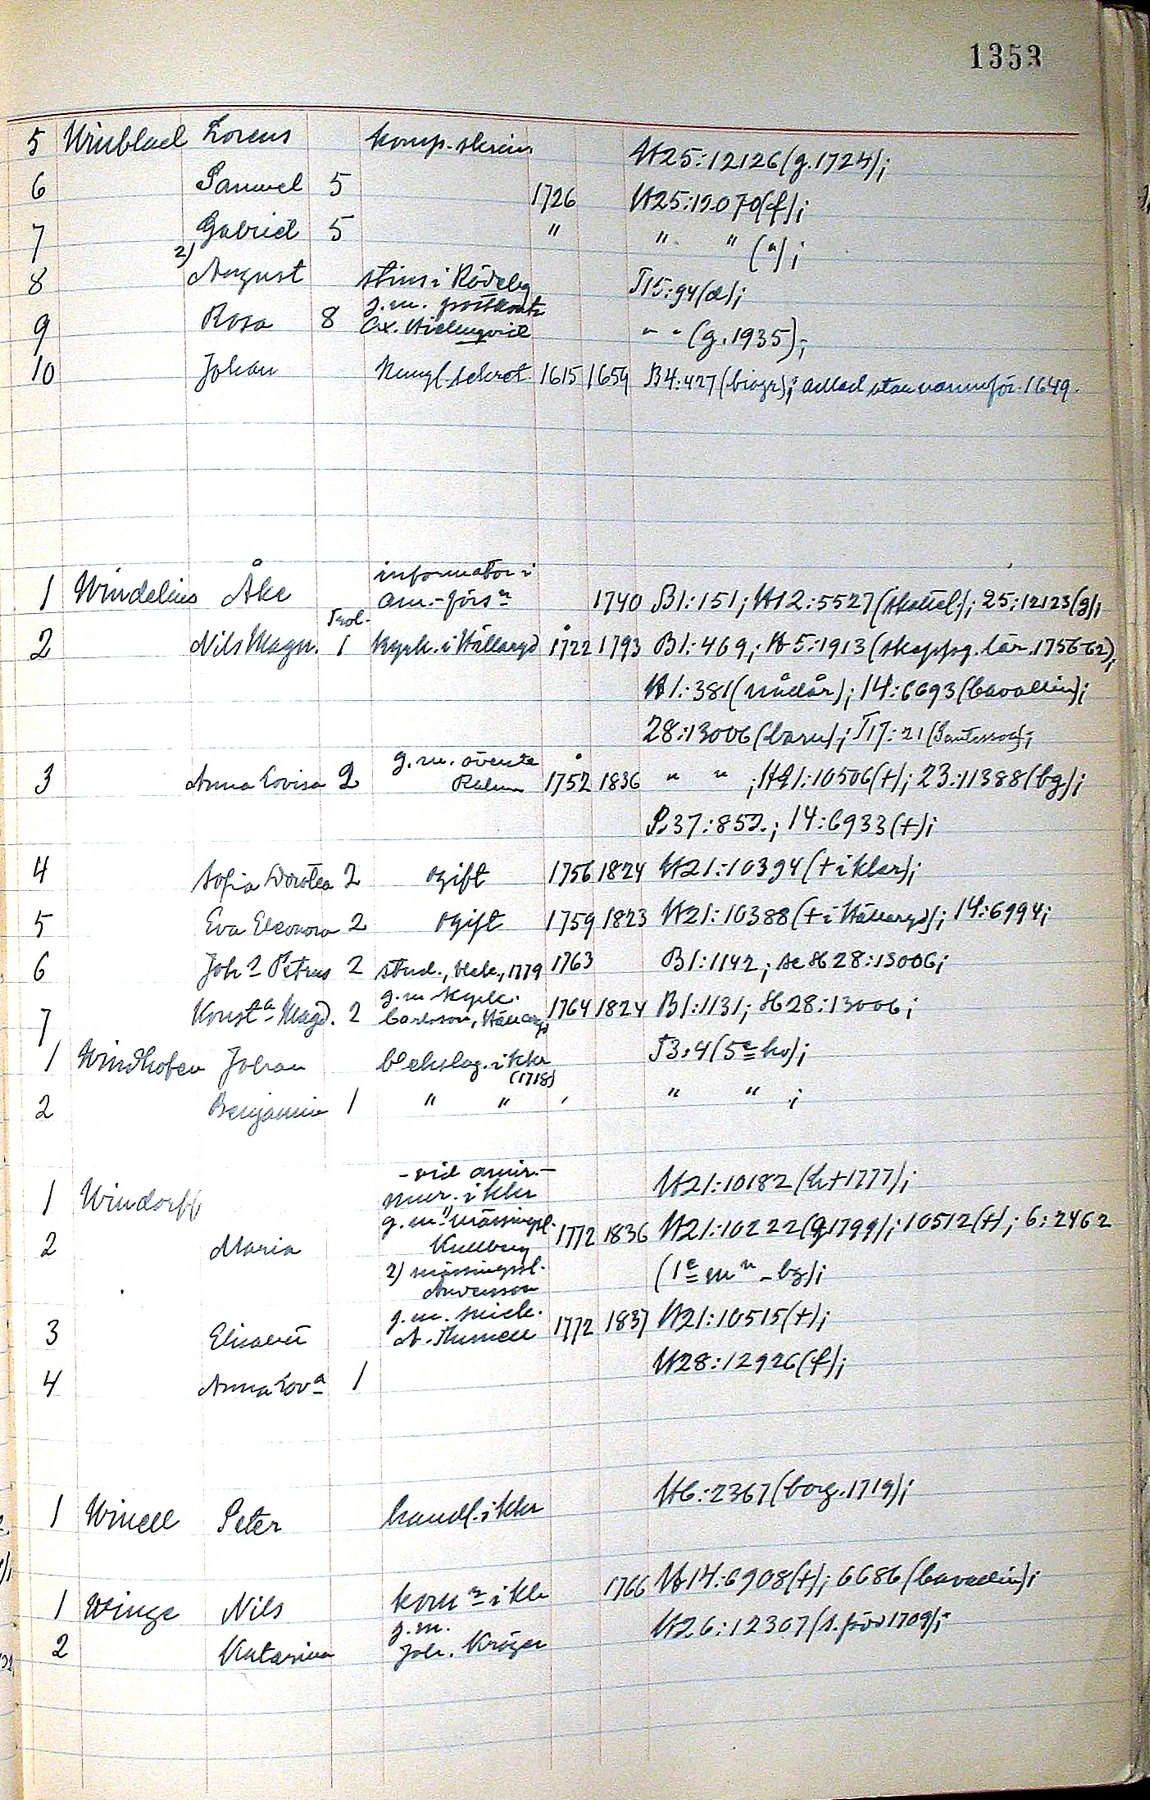 1353
5 Winblad Lorens komp.skriv. H25:12126(g.1724);
6 Samuel 5 1726 H25:12070(f);
7 Gabriel 5 " " " (");
8 2) August stins i Rödeby T15:94(d);
9 Rosa 8 g.m. postkont. Ax. " " (g.1935);
10 Johan Kungl.sekret. 1615 1659 B4:427(biogr); adlad utan namnför. 1649.
1 Windelius Åke informator i am.-förs 1740 B1:151; H12:5527(skattel.); 25:12123(g);
2 Nils Magn. 1 kyrk. i Hällaryd 1722 1793 B1:469; H5:1913(skeppsg. lär. 1756-62);
H1:381(nådår); 14:6693(Cavallin);
28:13006(barn); T17:21(Santesson);
3 Anna Lovisa 2 g.m. 1752 1836 " " ; H21:10506(†); 23:11388(bg);
P.37:852.; 14:6933(†);
4 Sofia Dorotea 2 ogift 1756 1824 H21:10394(† i Khr);
5 Eva Eleonora 2 ogift 1759 1823 H21:10388(† i Hällaryd); 14:6994;
6 Joh Petrus 2 stud., 1779 1763 B1:1142; se H28:13006;
7 Konst.a Magd. 2 g.m. kyrk. Carlsson, Hällaryd 1764 1824 B1:1131; H28:13006;
1 Windhofen Johan i Kkr (1718) T3:4(5e hv);
2 Benjamin 1 " " " " ;
1 Windorff - vid amir. - mur. i Kkr H21:10182(h†1777);
2 Maria g.m. 1) mässingsl. Kullberg 1772 1836 H21:10222(g1799); 10512(†); 6:2462
2) mässingssl. Andersson (1e mn - bg);
3 Elisabet g.m. snick. A. Thunell 1772 1837 H21:10515(†);
4 Anna Lova 1 H28:12926(f);
1 Winell Peter handl. i Kkr H6:2367(borg.1719);
1 Winge Nils i Kk 1766 H14:6908(†); 6686(Cavallin);
2 Katarina g.m. Joh. Kröger H26:12307(d. före 1709);